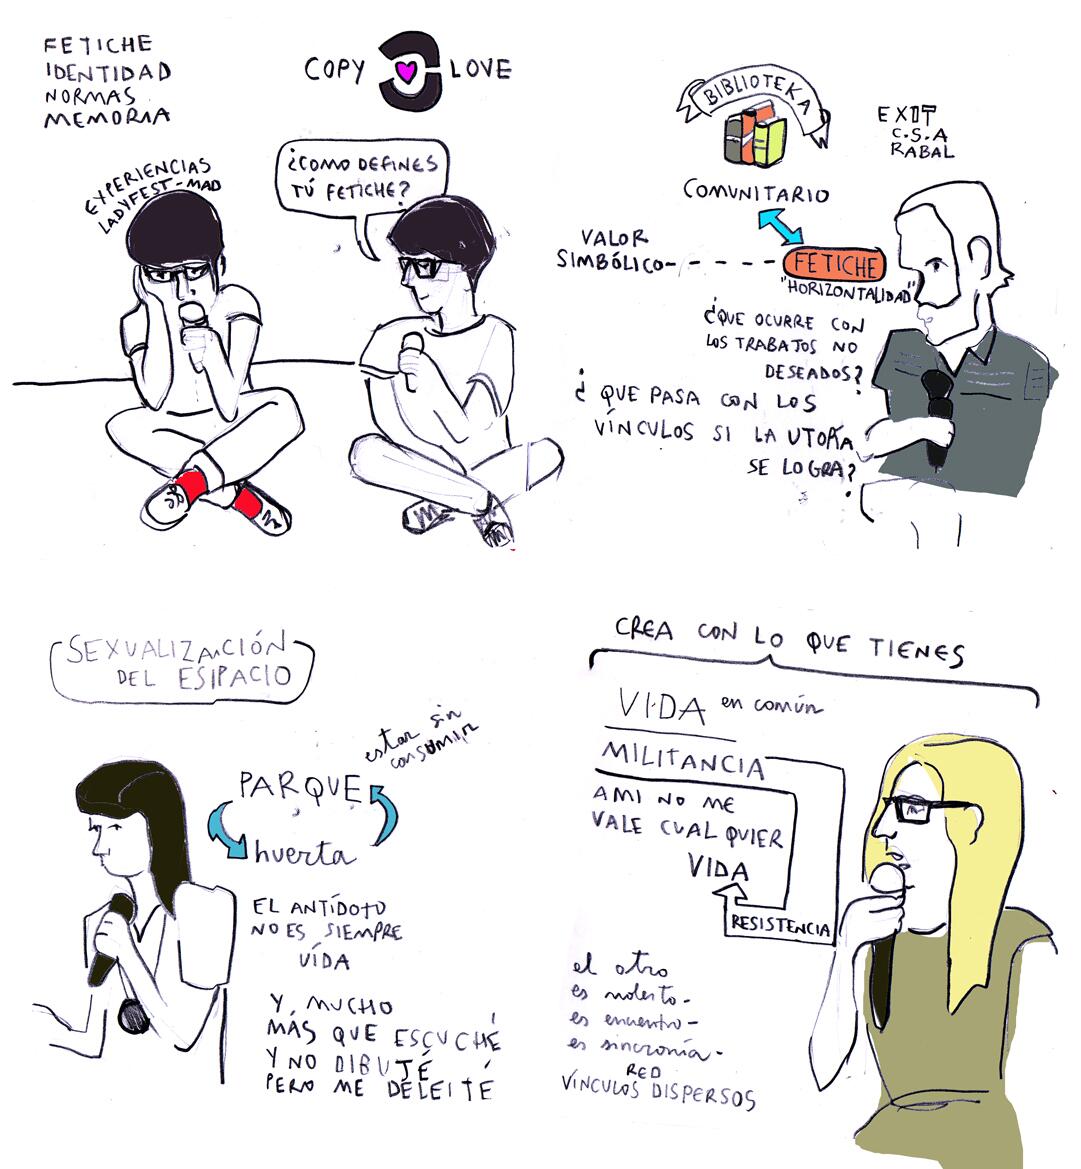 FETICHE
IDENTIDAD
NORMAS
MEMORIA
COPY LOVE
EXPERIENCIAS
LADYFEST-MAD
¿COMO DEFINES
TÚ FETICHE?
BIBLIOTEKA
EXIT
C.S.A
RABAL
COMUNITARIO
VALOR
SIMBÓLICO
FETICHE
"HORIZONTALIDAD"
¿QUE OCURRE CON
LOS TRABAJOS NO
DESEADOS?
¿QUE PASA CON LOS
VÍNCULOS SI LA UTOPÍA
SE LOGRA?
SEXUALIZACIÓN
DEL ESPACIO
estar sin
consumir
PARQUE
huerta
EL ANTÍDOTO
NO ES SIEMPRE
VÍDA
Y, MUCHO
MÁS QUE ESCUCHÉ
Y NO DIBUJÉ
PERO ME DELEITÉ
CREA CON LO QUE TIENES
VIDA en común
MILITANCIA
A MI NO ME
VALE CUALQUIER
VIDA
RESISTENCIA
el otro
es molesto-
es encuentro-
es sincronía-
RED
VÍNCULOS DISPERSOS